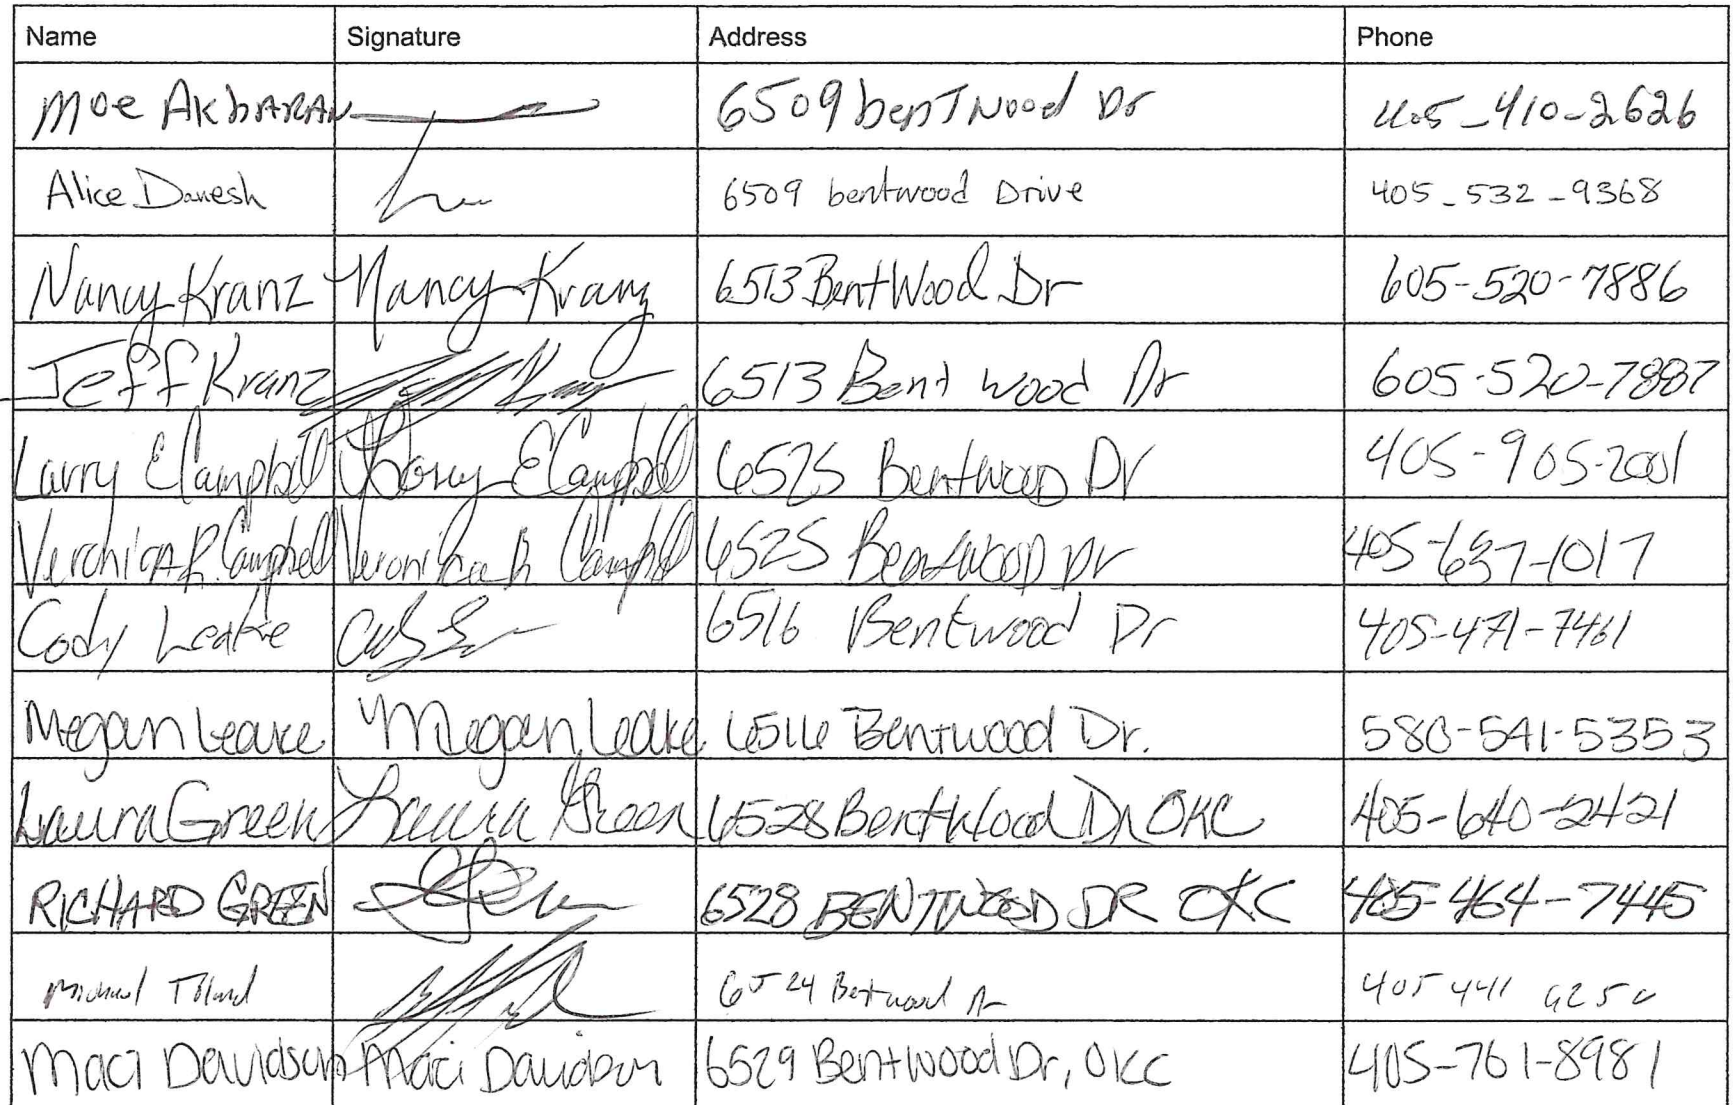 Name Signature Address Phone
Moe AkbARAN 6509 bentwood Dr 405-410-2626
Alice Danesh 6509 bentwood Drive 405-532-9368
Nancy Kranz Nancy Kranz 6513 BentWood Dr 605-520-7886
Jeff Kranz 6513 Bent wood Dr 605-520-7887
Larry E Campbell Larry E Campbell 6525 Bentwood Dr 405-905-2001
Veronica R. Campbell Veronica R Campbell 6525 Bentwood Dr 405-637-1017
Cody Leake 6516 Bentwood Dr 405-471-7461
Megan Leake Megan Leake 6516 Bentwood Dr. 580-541-5353
Laura Green Laura Green 6528 BentWood Dr OKC 405-640-2421
RICHARD GREEN 6528 BENTWOOD DR OKC 405-464-7445
Michael 6524 Bentwood Dr 405 441
Maci Davidson Maci Davidson 6529 Bentwood Dr, OKC 405-761-8981